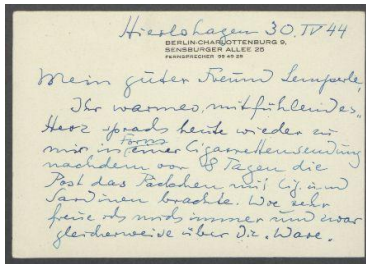 Hierlshagen 30. IV 44
BERLIN-CHARLOTTENBURG 9,
SENSBURGER ALLEE 25
FERNSPRECHER 99 49 29
Mein guter Freund Lemperle,
Ihr warmes, mitfühlendes
Herz sprach heute wieder zu
mir in Form einer Cigarettensendung
nachdem vor 8 Tagen die
Post das Päckchen mit Cig. und
Sardinen brachte. Wie sehr
freue ich mich immer und zwar
gleicherweise über die "Ware".